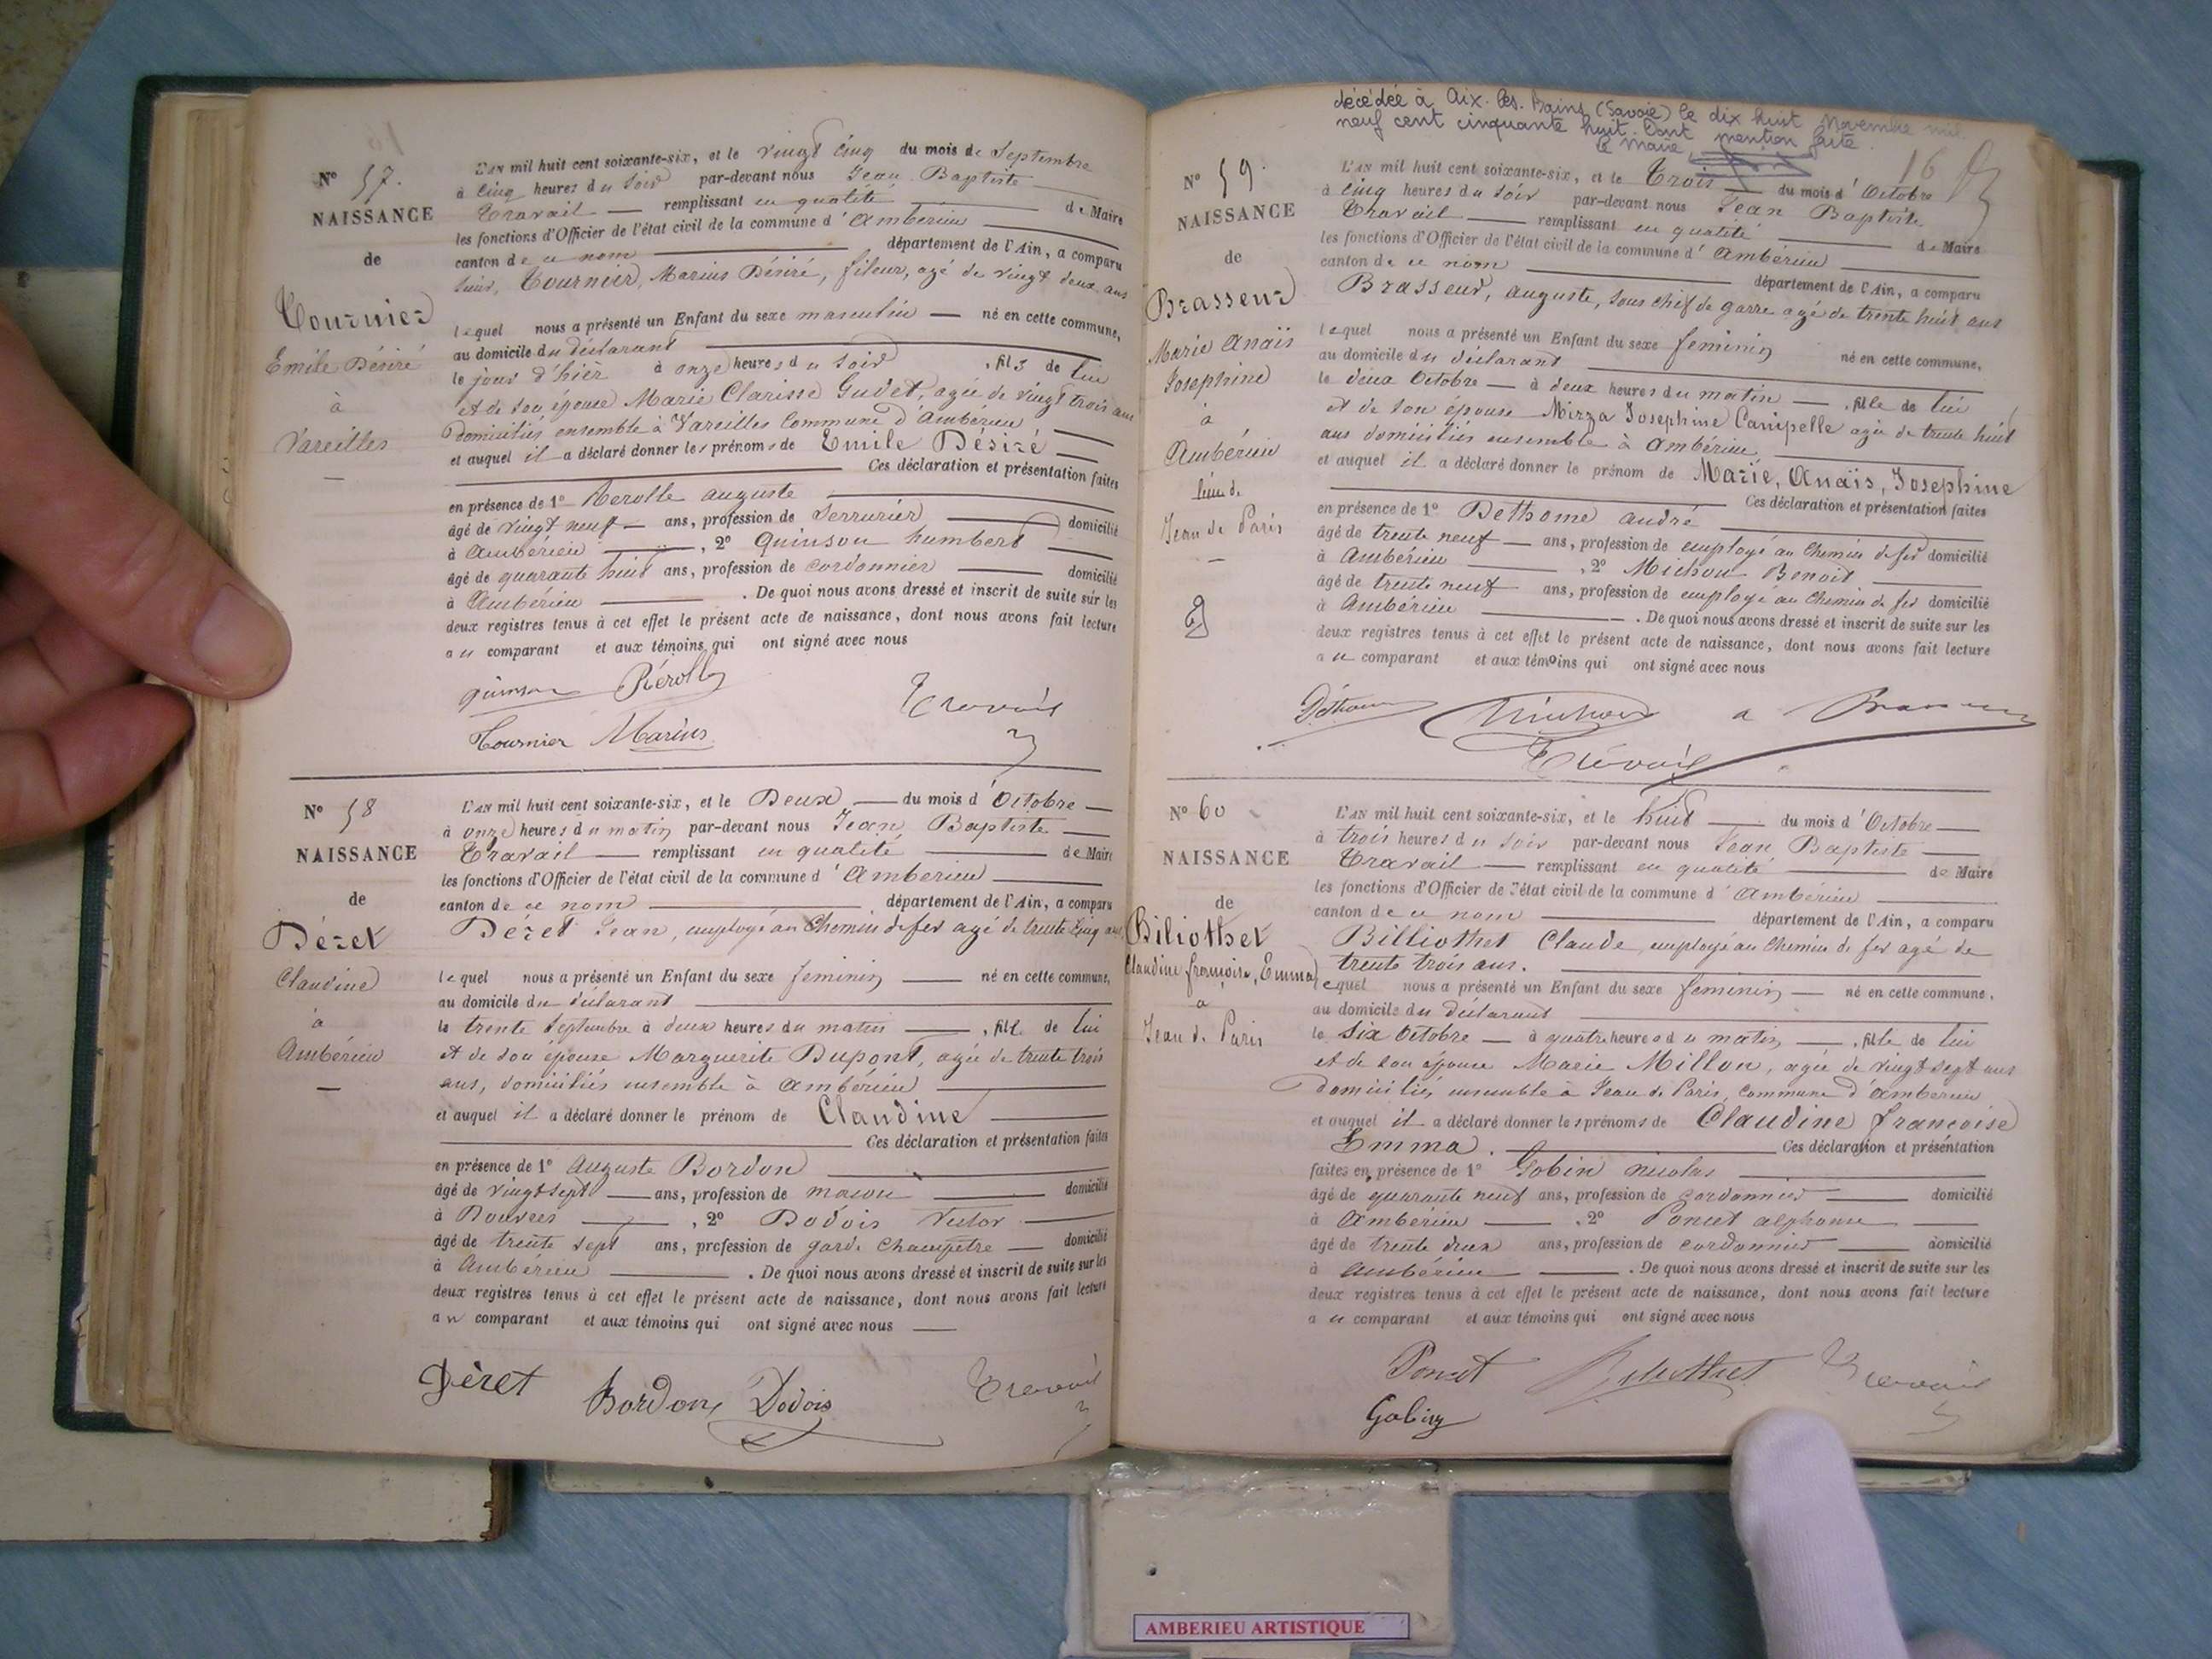 Nº 57.
NAISSANCE
de
Tournier
Emile Désiré
à
Vareilles
L'AN mil huit cent soixante-six, et le vingt cinq du mois de Septembre
à cinq heures du soir par-devant nous Jean Baptiste
Travail remplissant en qualité de Maire
les fonctions d'Officier de l'état civil de la commune d'Ambérieu
canton de ce nom département de l'Ain, a comparu
sieur, Tournier, Marius Désiré, fileur, agé de vingt deux ans
lequel nous a présenté un Enfant du sexe masculin né en cette commune,
au domicile du déclarant
le jour d'hier à onze heures du soir, fils de lui
et de son épouse Marie Clarisse Gudet, agée de vingt trois ans
domiciliés ensemble à Vareilles commune d'Ambérieu
et auquel il a déclaré donner les prénoms de Emile Désiré
Ces déclaration et présentation faites
en présence de 1º Rerolle auguste
âgé de vingt neuf ans, profession de Serrurier domicilié
à Ambérieu, 2º Quinson humbert
âgé de quarante huit ans, profession de cordonnier domicilié
à Ambérieu. De quoi nous avons dressé et inscrit de suite sur les
deux registres tenus à cet effet le présent acte de naissance, dont nous avons fait lecture
au comparant et aux témoins qui ont signé avec nous
quinson Rérolle
Travail
Tournier Marius
Nº 58
NAISSANCE
de
Déret
Claudine
à
Ambérieu
L'AN mil huit cent soixante-six, et le Deux du mois d'Octobre
à onze heures du matin par-devant nous Jean Baptiste
Travail remplissant en qualité de Maire
les fonctions d'Officier de l'état civil de la commune d'Ambérieu
canton de ce nom département de l'Ain, a comparu
Déret Jean, employé au Chemin de fer agé de trente cinq ans
lequel nous a présenté un Enfant du sexe feminin né en cette commune,
au domicile du déclarant
le trente Septembre à deux heures du matin, fille de lui
et de son épouse Marguerite Dupont, agée de trente trois
ans, domiciliés ensemble à Ambérieu
et auquel il a déclaré donner le prénom de Claudine
Ces déclaration et présentation faites
en présence de 1º Auguste Bordon
âgé de vingt sept ans, profession de maçon domicilié
à Douvres, 2º Dodois Victor
âgé de trente sept ans, profession de garde Champêtre domicilié
à Ambérieu. De quoi nous avons dressé et inscrit de suite sur les
deux registres tenus à cet effet le présent acte de naissance, dont nous avons fait lecture
au comparant et aux témoins qui ont signé avec nous
Dèret Bordon Dodois Travail
décédée à Aix-les-Bains (Savoie) le dix huit Novembre mil
neuf cent cinquante huit. Dont mention faite
le Maire,
16
Nº 59.
NAISSANCE
de
Brasseur
Marie Anaïs
Josephine
à
Ambérieu
lieu de
Jean de Paris
L'AN mil huit cent soixante-six, et le Trois du mois d'Octobre
à cinq heures du soir par-devant nous Jean Baptiste
Travail remplissant en qualité de Maire
les fonctions d'Officier de l'état civil de la commune d'Ambérieu
canton de ce nom département de l'Ain, a comparu
Brasseur, auguste, sous chef de garre agé de trente huit ans
lequel nous a présenté un Enfant du sexe feminin né en cette commune,
au domicile du déclarant
le deux Octobre à deux heures du matin, fille de lui
et de son épouse Mirza Josephine Canipelle agée de trente huit
ans domiciliés ensemble à Ambérieu
et auquel il a déclaré donner le prénom de Marie, Anaïs, Josephine
Ces déclaration et présentation faites
en présence de 1º Dethome andré
âgé de trente neuf ans, profession de employé au Chemin de fer domicilié
à Ambérieu, 2º Michou Benoit
âgé de trente neuf ans, profession de employé au Chemin de fer domicilié
à Ambérieu. De quoi nous avons dressé et inscrit de suite sur les
deux registres tenus à cet effet le présent acte de naissance, dont nous avons fait lecture
au comparant et aux témoins qui ont signé avec nous
Travail
Nº 60
NAISSANCE
de
Biliothet
Claudine françoise, Emma
à
Jean de Paris
L'AN mil huit cent soixante-six, et le huit du mois d'Octobre
à trois heures du soir par-devant nous Jean Baptiste
Travail remplissant en qualité de Maire
les fonctions d'Officier de l'état civil de la commune d'Ambérieu
canton de ce nom département de l'Ain, a comparu
Billiothet Claude, employé au Chemin de fer agé de
trente trois ans.
lequel nous a présenté un Enfant du sexe feminin né en cette commune,
au domicile du déclarant
le six Octobre à quatre heures du matin, fille de lui
et de son épouse Marie Millon, agée de vingt sept ans
domiciliés ensemble à Jean de Paris, commune d'Ambérieu
et auquel il a déclaré donner les prénoms de Claudine françoise
Emma. Ces déclaration et présentation
faites en présence de 1º Gobin nicolas
âgé de quarante neuf ans, profession de cordonnier domicilié
à Ambérieu, 2º Poncet alphonse
âgé de trente deux ans, profession de cordonnier domicilié
à Ambérieu. De quoi nous avons dressé et inscrit de suite sur les
deux registres tenus à cet effet le présent acte de naissance, dont nous avons fait lecture
au comparant et aux témoins qui ont signé avec nous
Poncet Biliothet Travail
Gobin
AMBERIEU ARTISTIQUE